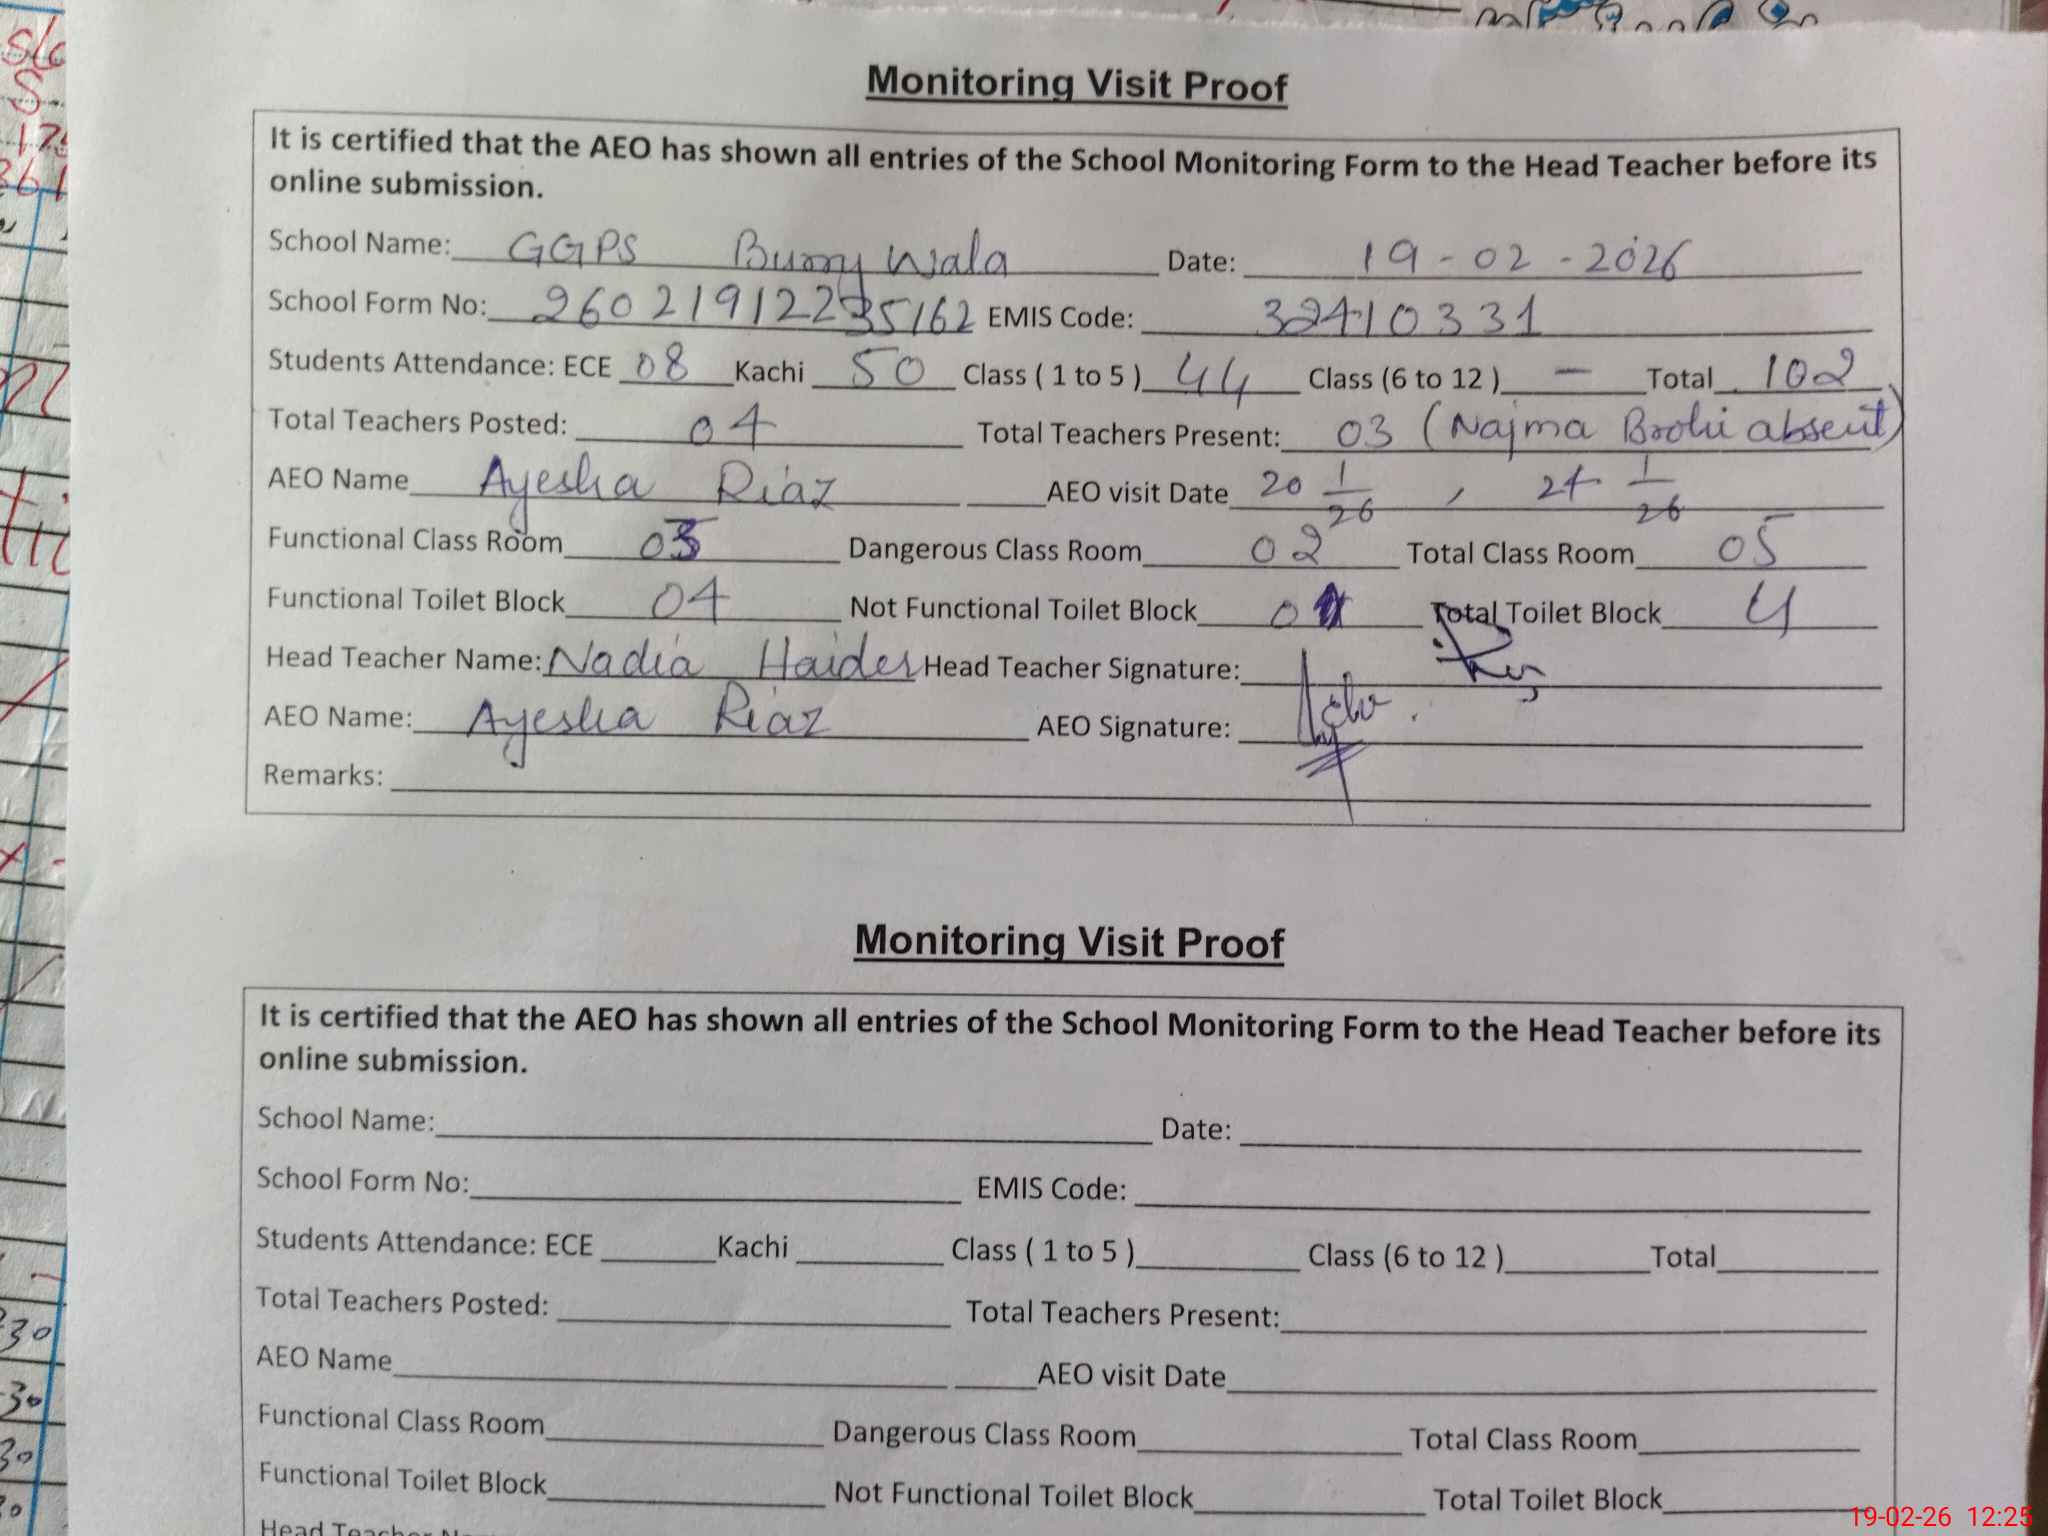 Monitoring Visit Proof
It is certified that the AEO has shown all entries of the School Monitoring Form to the Head Teacher before its
online submission.
School Name: GGPS Burry Wala Date: 19-02-2026
School Form No: 26021912235162 EMIS Code: 32410331
Students Attendance: ECE 08 Kachi 50 Class ( 1 to 5 ) 44 Class (6 to 12 ) - Total 102
Total Teachers Posted: 04 Total Teachers Present: 03 (Najma Brohi absent)
AEO Name Ayesha Riaz AEO visit Date 20 1/26 , 24 1/26
Functional Class Room 03 Dangerous Class Room 02 Total Class Room 05
Functional Toilet Block 04 Not Functional Toilet Block 0 Total Toilet Block 4
Head Teacher Name: Nadia Haider Head Teacher Signature:
AEO Name: Ayesha Riaz AEO Signature:
Remarks:
Monitoring Visit Proof
It is certified that the AEO has shown all entries of the School Monitoring Form to the Head Teacher before its
online submission.
School Name: Date:
School Form No: EMIS Code:
Students Attendance: ECE Kachi Class ( 1 to 5 ) Class (6 to 12 ) Total
Total Teachers Posted: Total Teachers Present:
AEO Name AEO visit Date
Functional Class Room Dangerous Class Room Total Class Room
Functional Toilet Block Not Functional Toilet Block Total Toilet Block
Head Teacher
19-02-26 12:25